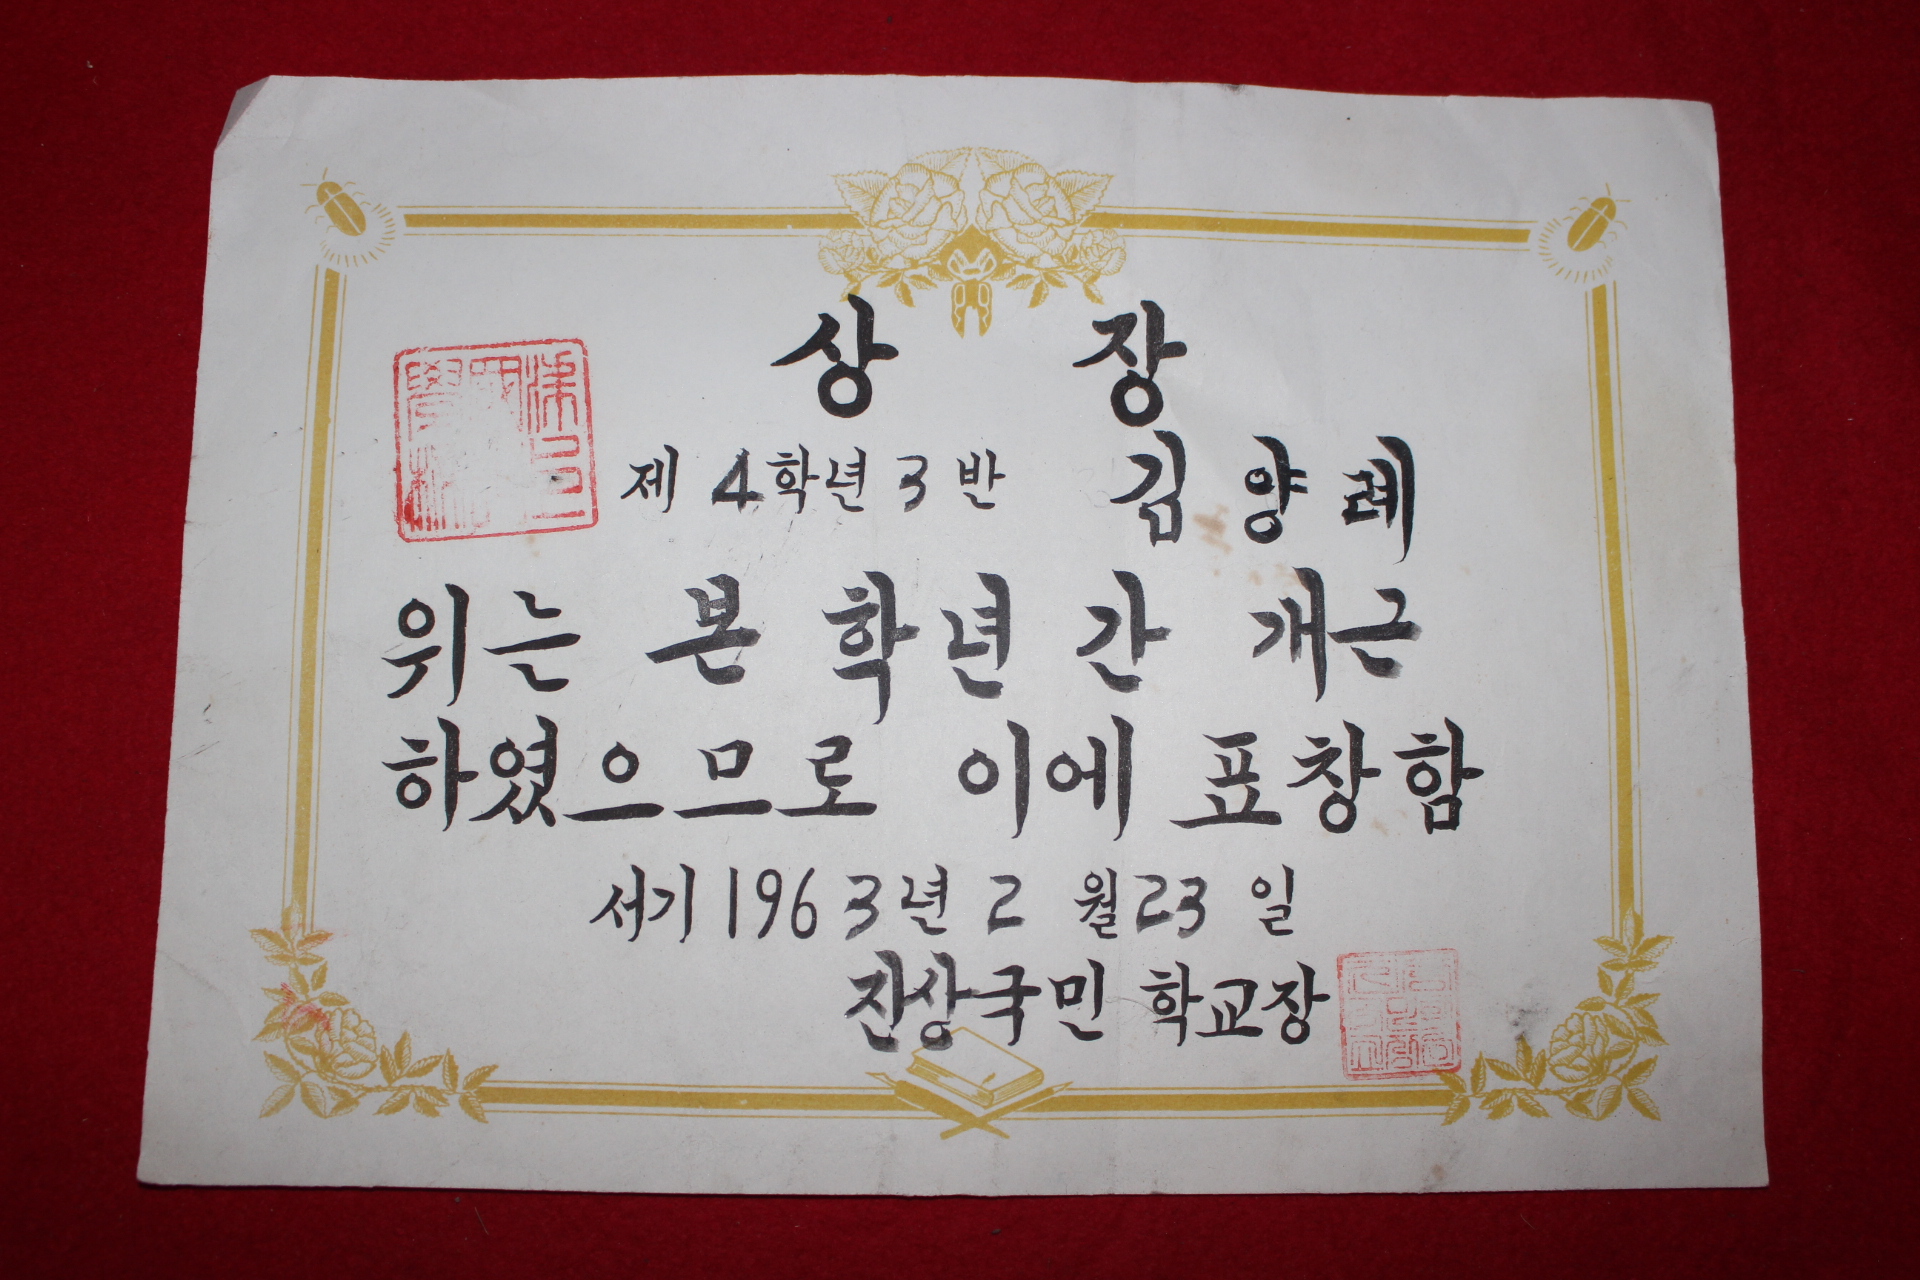 상 장
제 4학년 3 반 김 양 례
위는 본 학년 간 개근
하였으므로 이에 표창함
서기 1963년 2 월 23 일
진상국민 학교장